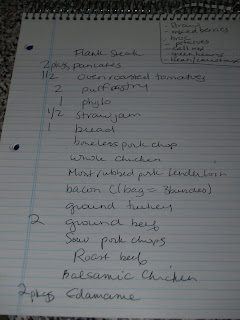 - bread
- mixed berries
- broc
- potatoes
- green beans
Flank Steak
2 pkgs pancakes
1/2 oven roasted tomatoes
2 puff pastry
1 phylo
1/2 straw jam
1 bread
boneless pork chop
whole chicken
Moist rubbed pork tenderloin
bacon (1 bag = 3 bundles)
ground turkey
2 ground beef
Sour pork chops
Roast beef
Balsamic Chicken
2 pkgs Edamame